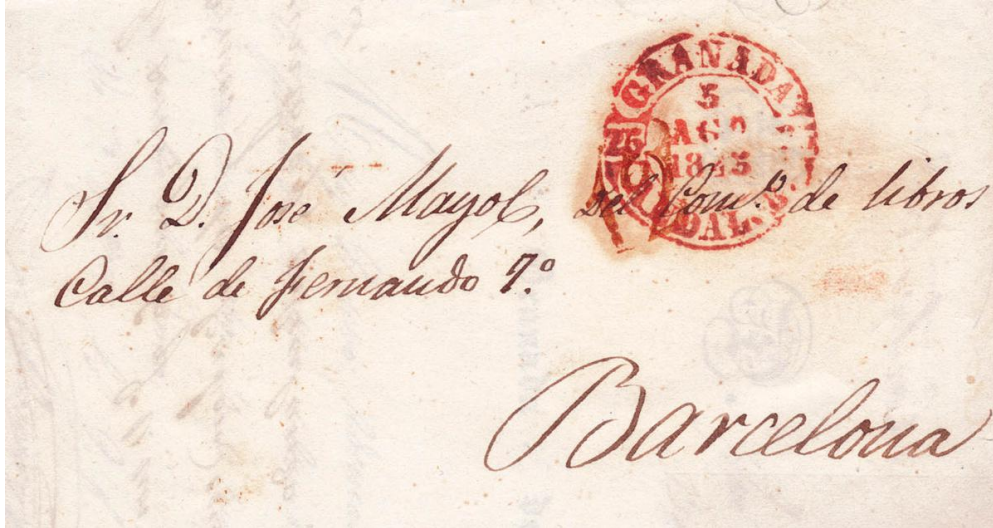 GRANADA
5
AGO
1845
25
DAL. B.
Sr. D. José Mayol, del Com.º de libros
Calle de Fernando 7.º
Barcelona